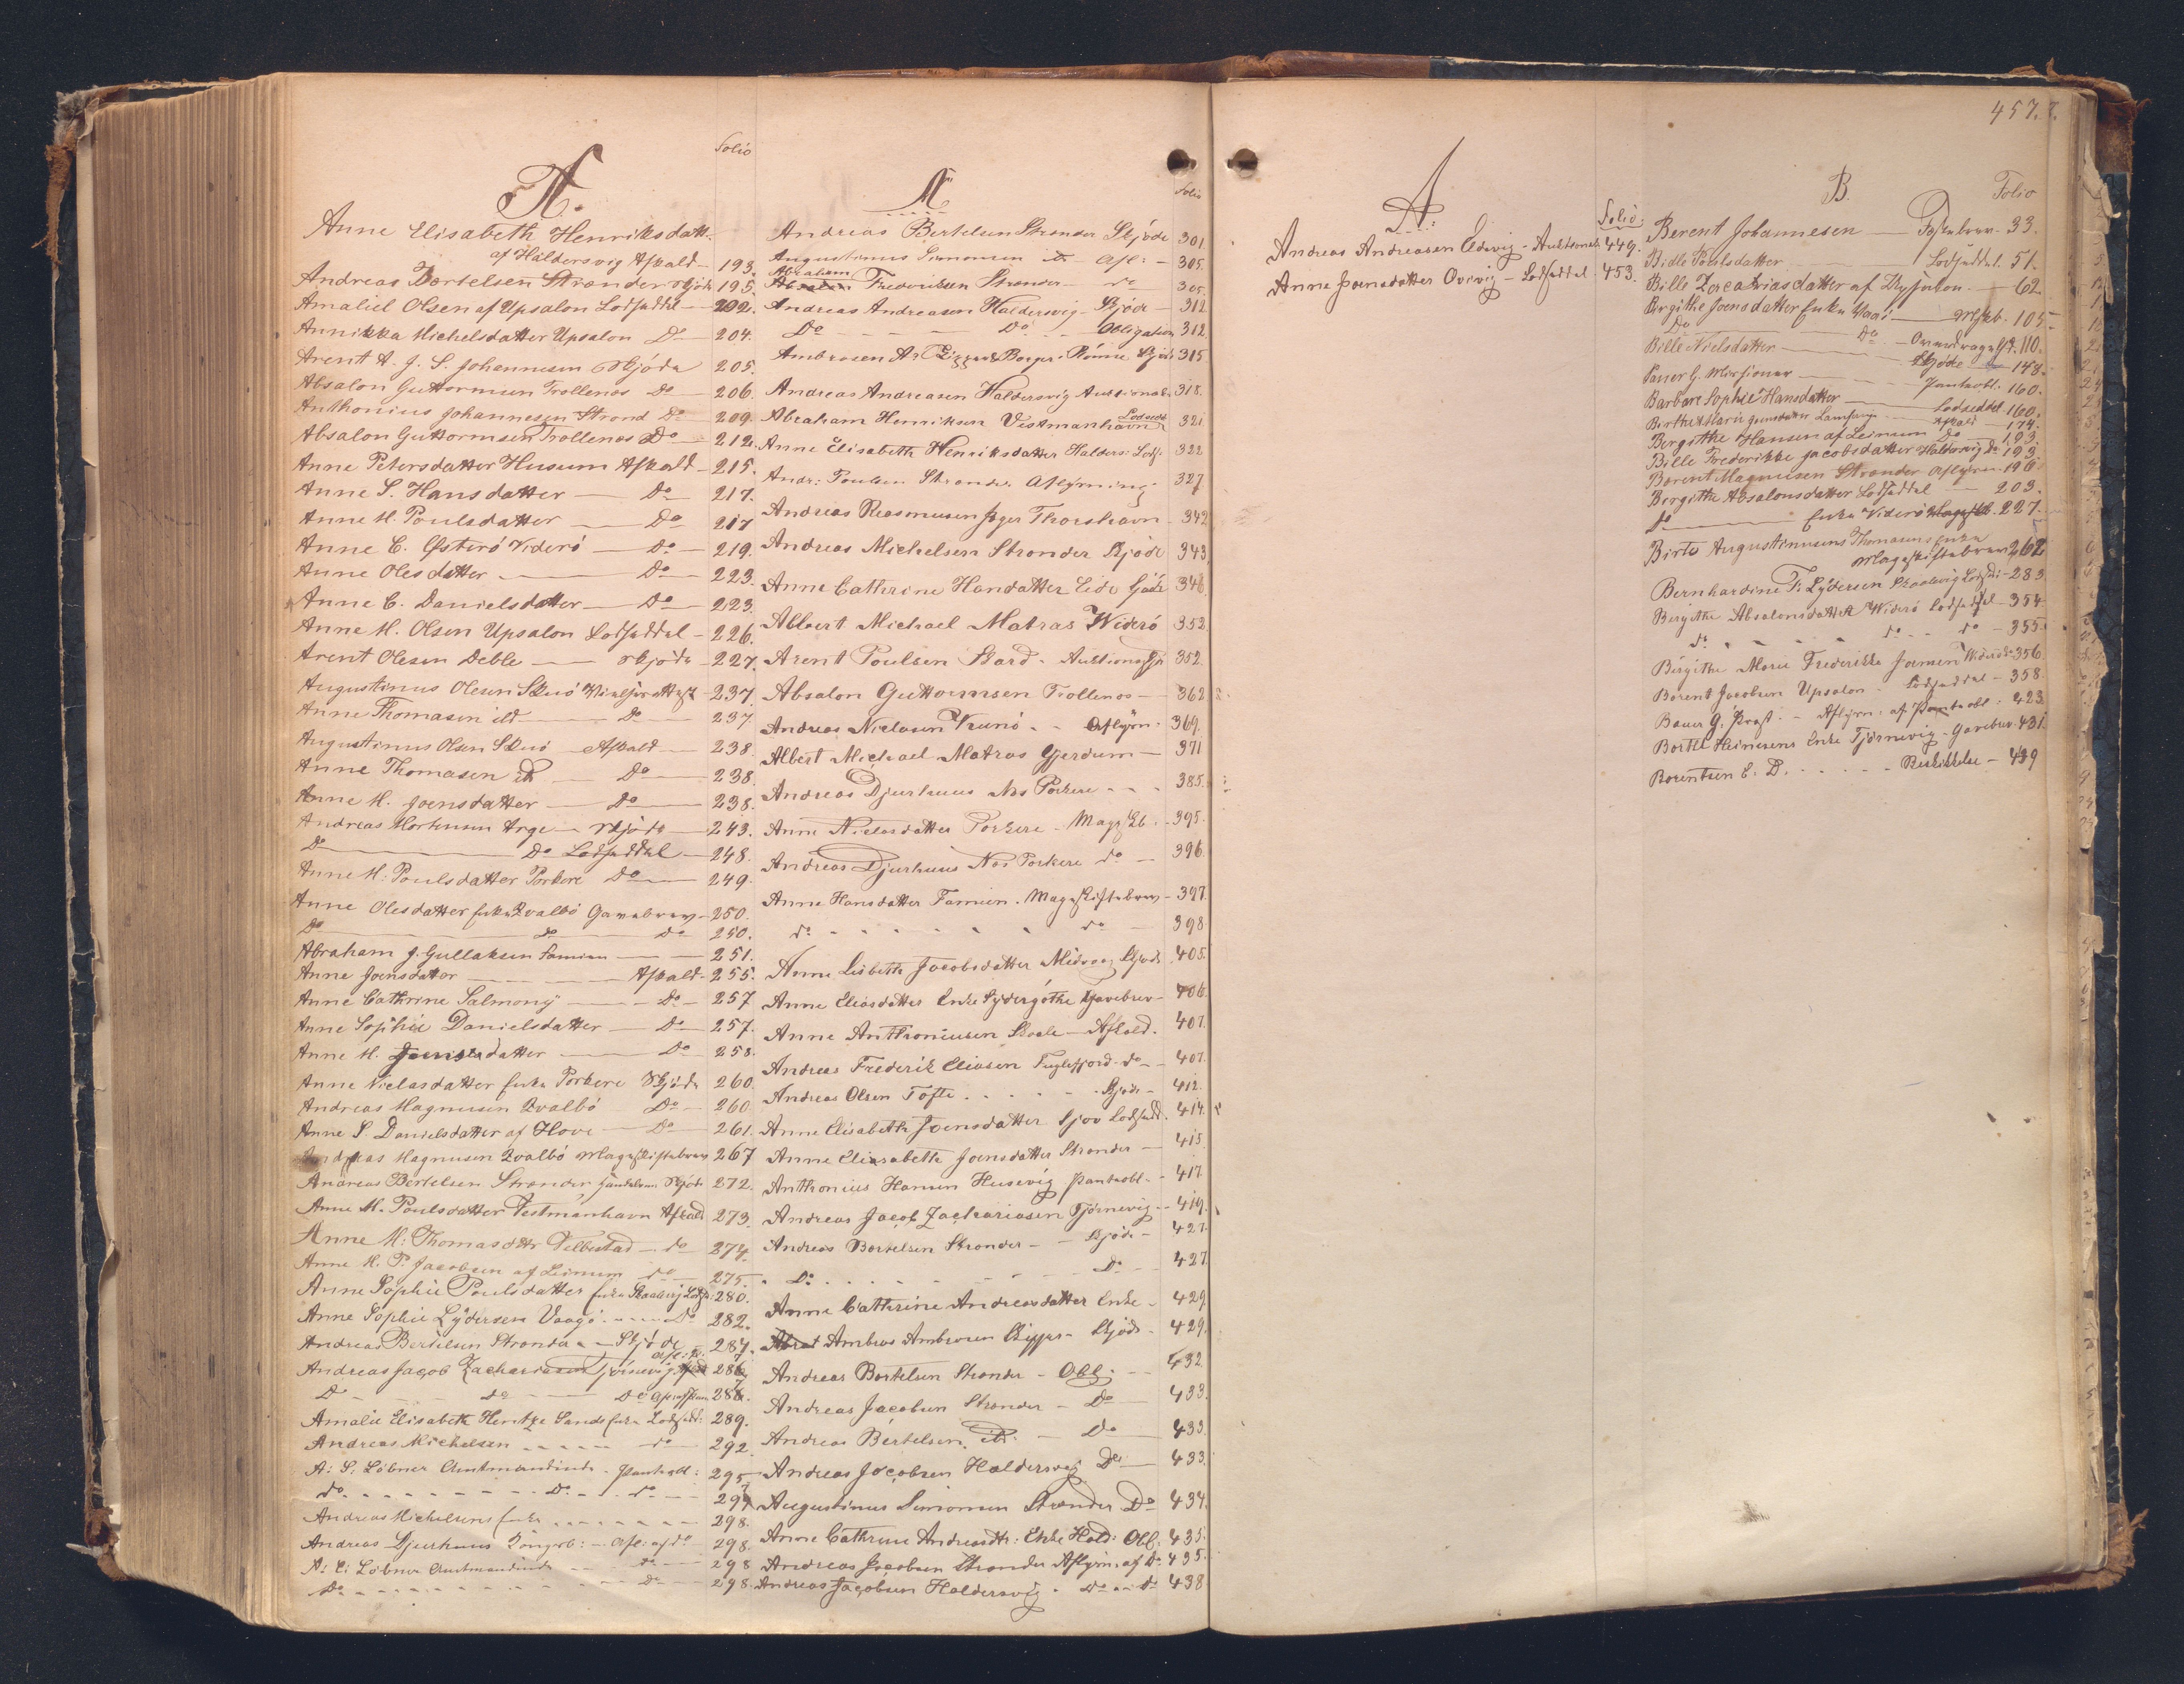 Folio
A.
Anne Elisabeth Henriksdatt.
af Haldersvig Afkald 193.
Andreas Bertelsen Strander Skjøde 195.
Amaliel Olsen af Upsalon Lodseddel 202.
Annikka Michelsdatter Upsalon Do 204.
Arent A. J. S. Johannesen Skjöde 205.
Absalon Guttormsen Trollenos Do 206.
Anthonius Johannesen Strand Do 209.
Absalon Guttormsen Trollenos Do 212.
Anne Petersdatter Husum Afkald 215.
Anne S. Hansdatter Do 217.
Anne M. Poulsdatter Do 217
Anne C. Østerö Viderö Do 219.
Anne Olesdatter Do 223.
Anne C. Danielsdatter Do 223.
Anne M. Olsen Upsalon Lodseddel 226.
Arent Olesen Deble Skjöde 227.
Augustinus Olesen Skuö 237.
Anne Thomasen ibd Do 237.
Augustinus Olsen Skuö Afkald 238.
Anne Thomasen Do 238.
Anne M. Joensdatter Do 238.
Andreas Mortensen Arge Skjöde 243.
Do Do Lodseddel 248.
Anne M. Poulsdatter Porkere Do 249.
Anne Olesdatter Enke Qvalbö Gavebrev 250.
Do Do Do 250.
Abraham J. Gullaksen Famien 251.
Anne Joensdatter Afkald 255.
Anne Cathrine Salmony Do 257
Anne Sophie Danielsdatter Do 257.
Anne M. Joensdatter Do 258.
Anne Niclasdatter Enke Porkere Skjöde 260.
Andreas Magnusen Qvalbö Do 260
Anne S. Danielsdatter af Hove Do 261.
Andreas Magnusen Qvalbö Mageskiftebrev 267
Andreas Bertelsen Strander Skjöde 272.
Anne M. Poulsdatter Vestmanhavn Afkald 273.
Anne M. Thomasdttr Velbestad do 274.
Anne M. P. Jacobsen af Leinum do 275.
Anne Sophie Poulsdatter Enke Skaalevig Lods 280.
Anne Sophie Lÿdersen Vaagö Do 282.
Andreas Bertelsen Strander Skjöde 287.
Andreas Jacob Zachariasen Tjörnevig 286
Do do Do 286.
Amalie Elisabeth Hentze Sands Enke Lodsedd: 289.
Andreas Michelsen do 292.
A: S: Löbner Amtmandinde Pantobl: 295
do Do do 297
Andreas Michelsens Enke 298.
Andreas Djurhuus Kongsb: Afl: af do 298.
A: C: Löbner Amtmandinde do 298
Do Do 298.
A
Folio
Andreas Bertelsen Strander Skjöde 301.
Augustinus Simonsen Afl: 305.
Abraham
Frederiksen Strander do 305.
Andreas Andreasen Haldersvig Skjöde 312
Do Do Obligation 312
Ambrosen A: Skipper Borger Rönne Skjöde 315
Andreas Andreasen Haldersvig Auctionssk 318.
Abraham Henriksen Vestmanhavn Lodsedd 321
Anne Elisabeth Henriksdatter Halders: Lods: 322
Andr: Poulsen Strander Aflÿsning 327
Andreas Rasmusen Jæger Thorshavn 342
Andreas Michelsen Strander Skjöde 343
Anne Cathrine Hansdatter Eide Skjöde 348.
Albert Michael Matras Viderö 352
Arent Poulsen Skard Auktionsskjö 352.
Absalon Guttormsen Trollenos 362
Andreas Niclasen Kunö Aflÿsn: 369.
Albert Michael Matras Gjerdum 371
Andreas Djurhuus Nes Porkere 385.
Anne Niclasdatter Porkere Mageskb. 395.
Andreas Djurhuus Nes Porkere do 396
Anne Hansdatter Famien Mageskiftebrev 397.
do do 398
Anne Lisbeth Jacobsdatter Midvaag Skjöde 405.
Anne Eliasdatter Enke Sydergöthe Gavebrev 406
Anne Anthoniusen Skaale Afkald. 407.
Andreas Frederik Eliasen Fuglefjord do 407.
Andreas Olsen Tofte Skjöde 412.
Anne Elisabeth Joensdatter Sjov Lodsedd. 414.
Anne Eliesabeth Joensdatter Strander 415
Anthonius Hansen Husevig Pantobl. 417.
Andreas Jacob Zachariasen Tjörnevig 419.
Andreas Bertelsen Strander Skjöde 427.
Do Do 427.
Anne Cathrine Andreasdatter Enke 429.
Ambros Ambrosen Skipper Skjöde 429.
Andreas Bertelsen Strander Obl: 432
Andreas Jacobsen Strander Do 433.
Andreas Bertelsen Do 433
Andreas Jacobsen Haldersvig Do 433.
Augustinus Simonsen Strander Do 434.
Anne Cathrine Andreasdtr: Enke Hald: Obl. 435.
Andreas Jacobsen Strander Aflÿsn. af Do 435.
Andreas Jacobsen Haldersvig Do Do 438.
A:
Folio:
Andreas Andreasen Eldevig Auktionssk 449.
Anne Joensdatter Ovevig Lodseddel 453.
457.
B.
Folio
Berent Johannesen Festebrev 33.
Bidle Poulsdatter Lodseddel 51.
Bille Zacahriasdatter af 62
Birgithe Joensdatter Enke Vaag Mgskb. 105
Do Do Overdragelse 110.
Bille Nielsdatter Skjöde 148.
Pantobl. 160.
Barbare Sophie Hansdatter Lodseddel 160.
Birthe Marie Afkald 174.
Bergithe Hansen af Leinum Do 193.
Bille Frederikke Jacobsdatter Haldersvig Do 193.
Berent Magnusen Strander Aflysn. 196
Bergithe Absalonsdatter Lodseddel 203.
Do Enke Viderö 227.
Birte Augustinusens Thomasens Enke
Mageskiftebrev 262
Bernhardine F. Lÿdersen Skaalevig Lods: 283
Birgithe Absalonsdatter Viderö Lodseddel 354
do do do 355.
Birgithe Marie Frederikke Joensen Viderö 356
Berent Jacobsen Upsalon Lodseddel 358.
Bauer G. Prast. Aflysn: af Pantobl: 423.
Bertel Heinesens Enke Tjörnevig Gavebrev 431.
Berentsen C. D. Beskikkelse 439